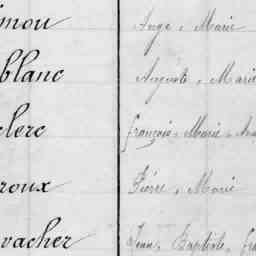 imou Ange, Marie
blanc Auguste, Marie
clerc françois, Marie,
roux Pierre, Marie
vacher Jean, Baptiste,